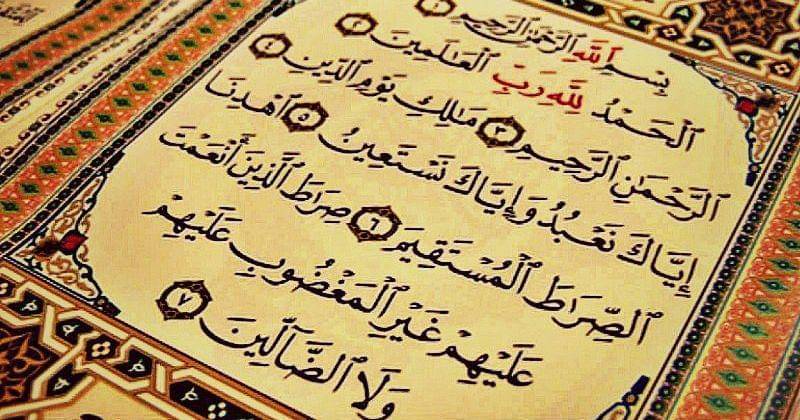 بِسْمِ ٱللَّهِ ٱلرَّحْمَٰنِ ٱلرَّحِيمِ ١
ٱلْحَمْدُ لِلَّهِ رَبِّ ٱلْعَالَمِينَ ٢
ٱلرَّحْمَٰنِ ٱلرَّحِيمِ ٣ مَالِكِ يَوْمِ ٱلدِّينِ ٤
إِيَّاكَ نَعْبُدُ وَإِيَّاكَ نَسْتَعِينُ ٥ ٱهْدِنَا
ٱلصِّرَاطَ ٱلْمُسْتَقِيمَ ٦ صِرَاطَ ٱلَّذِينَ أَنْعَمْتَ
عَلَيْهِمْ غَيْرِ ٱلْمَغْضُوبِ عَلَيْهِمْ
وَلَا ٱلضَّآلِّينَ ٧